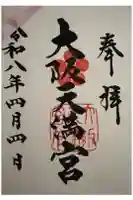 奉拝
大阪天満宮
令和八年四月四日